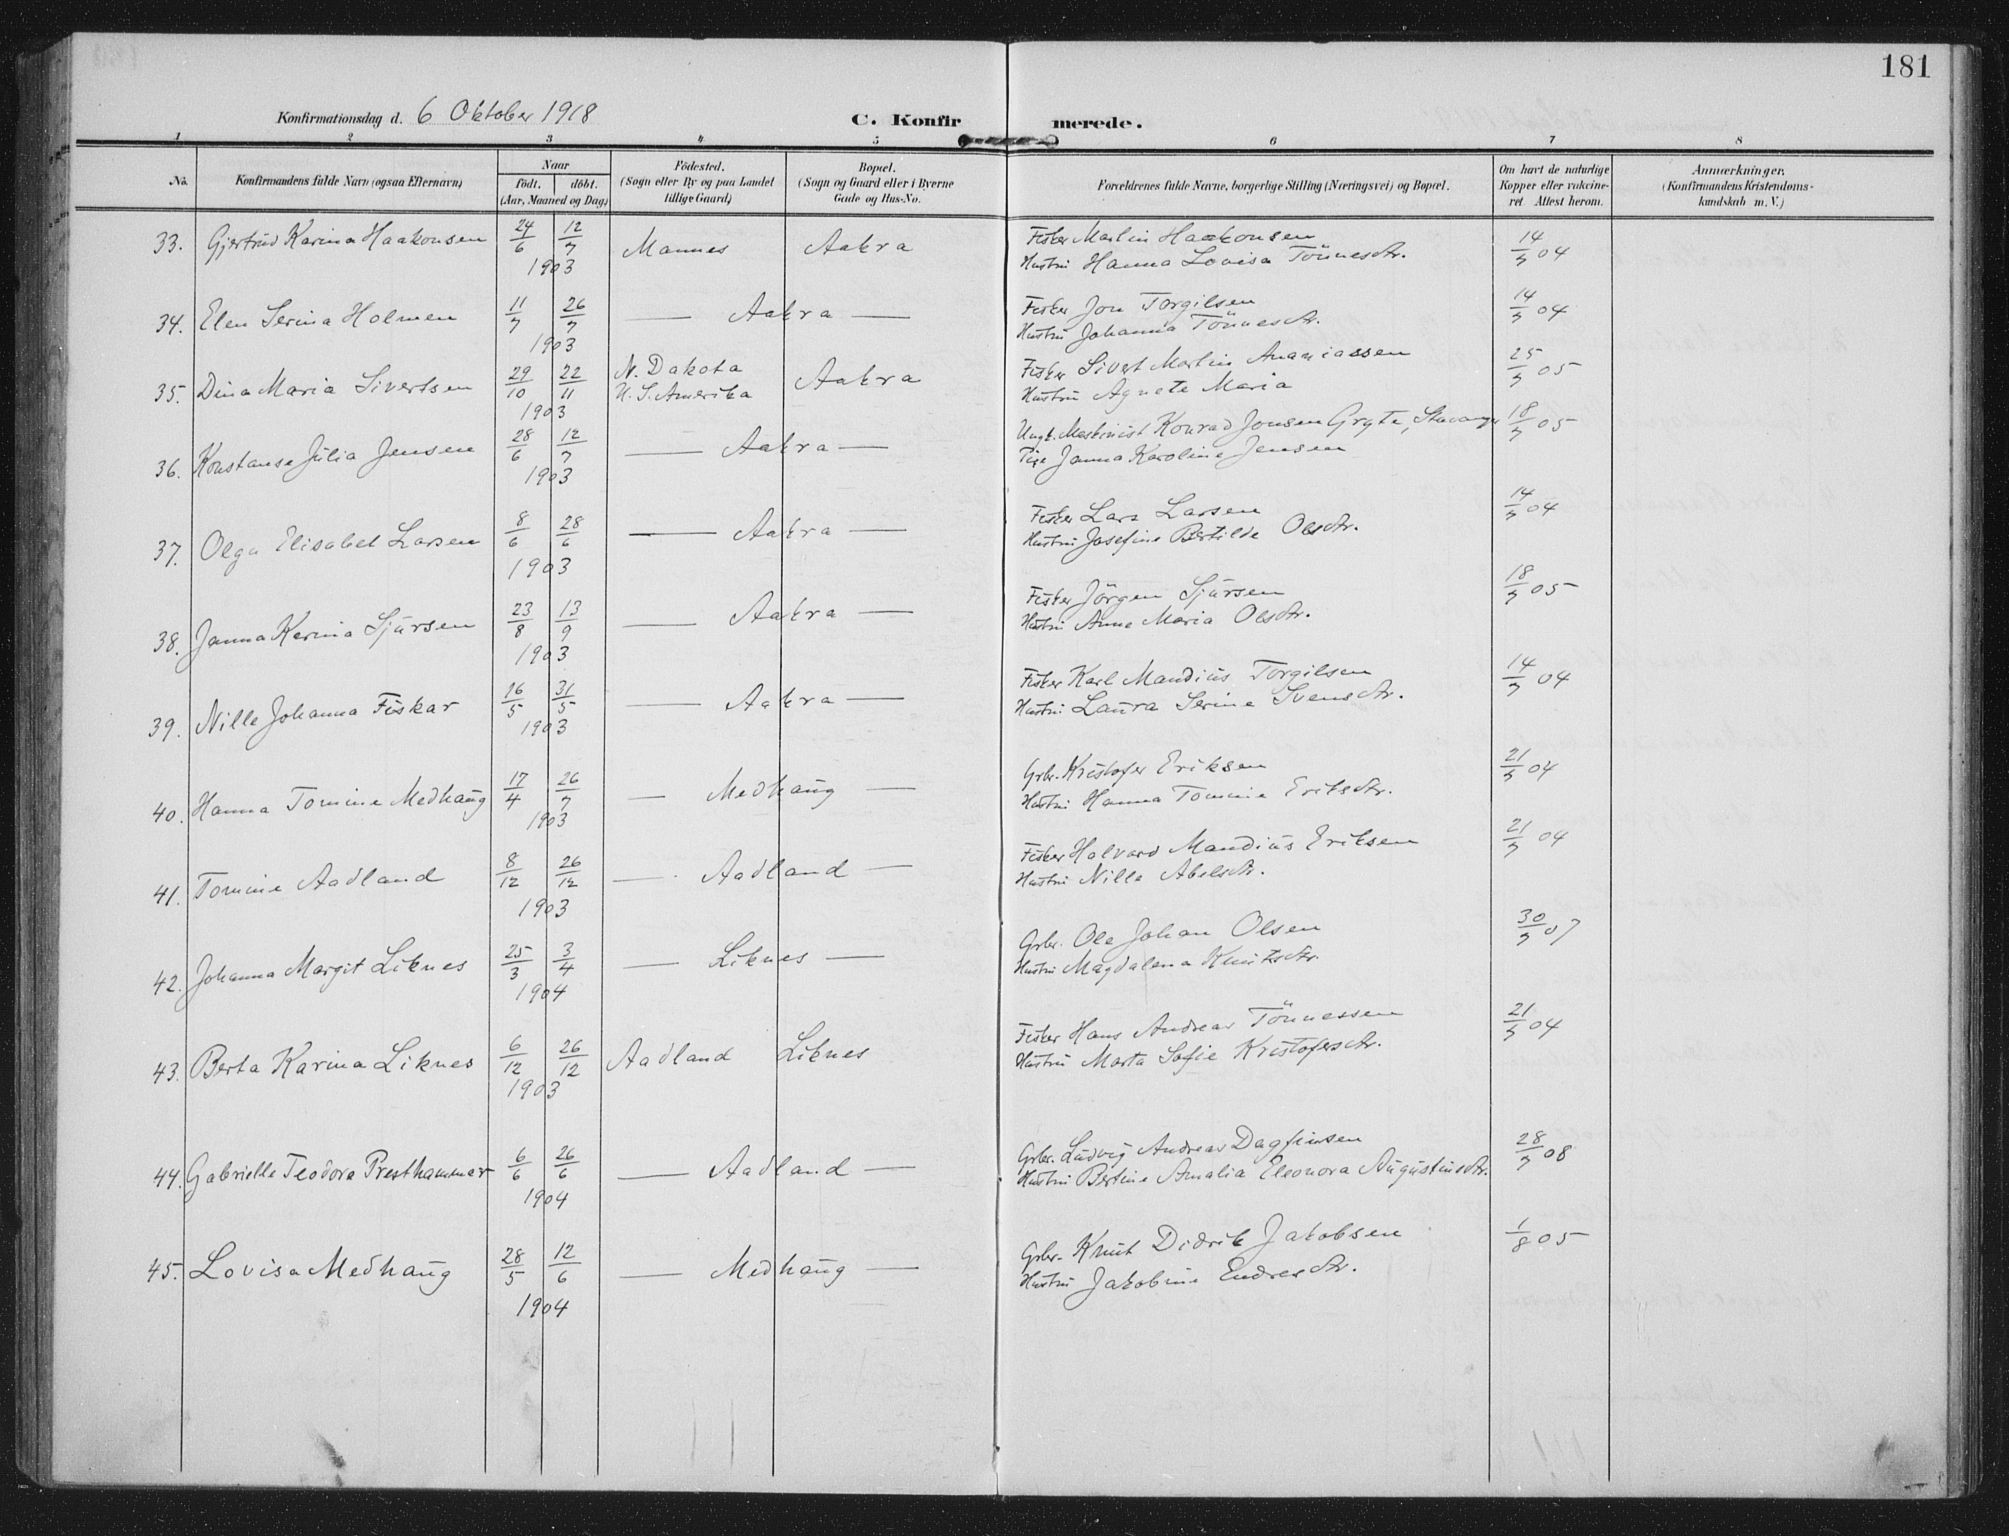 181
Konfirmationsdag d. 6 Oktober 1918
C. Konfirmerede.
1 2 3 4 5 6 7 8
No.
Konfirmandens fulde Navn (ogsaa Efternavn)
Naar
født. døbt.
(Aar, Maaned og Dag)
Fødested.
(Sogn eller By og paa Landet
tillige Gaard)
Bopæl.
(Sogn og Gaard eller i Byerne
Gade og Hus-No.
Forældrenes fulde Navne, borgerlige Stilling (Næringsvei) og Bopæl.
Om havt de naturlige
Kopper eller vakcine-
ret. Attest herom.
Anmærkninger.
(Konfirmandens Kristendoms-
kundskab m. V.)
33. Gjertrud Karina Haakonsen 24/6 12/7 1903 Mannes Aakra
Fisker Martin Haakonsen
Hustru Hanna Lovisa Tönnesdtr. 14/7 04
34. Elen Serina Holmen 11/7 26/7 1903 — Aakra —
Fisker Jon Torgilsen
Hustru Johanna Tönnesdtr. 14/7 04
35. Dina Maria Sivertsen 29/10 22/11 1903 N. Dakota
U. S. Amerika Aakra
Fisker Sivert Martin Ananiassen
Hustru Agnete Maria 25/7 05
36. Konstanse Julia Jensen 28/6 12/7 1903 — Aakra —
Ungk. Maskinist Konrad Jonsen Gryte, Stavanger
Pige Janna Karoline Jensen 18/7 05
37. Olga Elisabet Larsen 8/6 28/6 1903 — Aakra —
Fisker Lars Larsen
Hustru Josefine Bertilde Olsdtr. 14/7 04
38. Janna Karina Sjursen 23/8 13/9 1903 — Aakra —
Fisker Jörgen Sjursen
Hustru Anne Maria Olsdtr. 18/7 05
39. Nille Johanna Fiskar 16/5 31/5 1903 — Aakra —
Fisker Karl Mandius Torgilsen
Hustru Laura Serine Svensdtr. 14/7 04
40. Hanna Tomine Medhaug 17/4 26/7 1903 — Medhaug —
Grbr. Kristofer Eriksen
Hustru Hanna Tomine Eriksdtr. 21/7 04
41. Tomine Aadland 8/12 26/12 1903 — Aadland —
Fisker Halvard Mandius Eriksen
Hustru Nille Abelsdtr. 21/7 04
42. Johanna Margit Liknes 25/3 3/4 1904 — Liknes —
Grbr. Ole Johan Olsen
Hustru Magdalena Knutsdtr. 30/7 07
43. Berta Karina Liknes 6/12 26/12 1903 Aadland Liknes
Fisker Hans Andreas Tönnessen
Hustru Marta Sofie Kristofersdtr. 21/7 04
44. Gabrielle Teodora Presthammer 6/6 26/6 1904 — Aadland —
Grbr. Ludvig Andreas Dagfinsen
Hustru Bertine Amalia Eleonora Augustinsdtr. 28/7 08
45. Lovisa Medhaug 28/5 12/6 1904 — Medhaug —
Grbr. Knut Didrik Jakobsen
Hustru Jakobine Endresdtr. 1/8 05